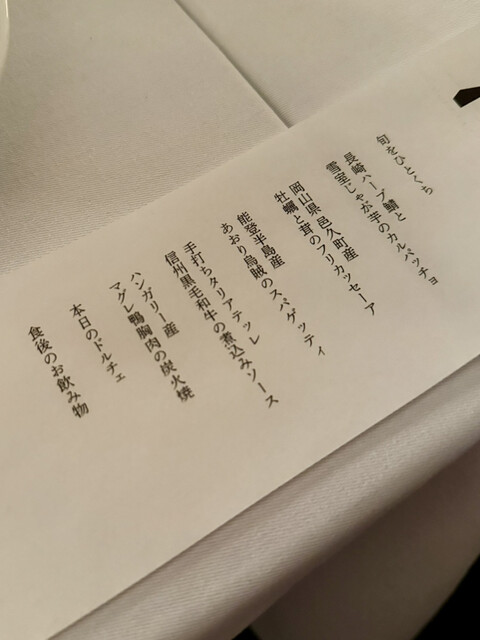 旬をひとくち
長崎ハーブ鯖と
雪室じゃが芋のカルパッチョ
岡山県邑久町産
牡蠣と茸のフリカッセーア
能登半島産
あおり烏賊のスパゲッティ
手打ちタリアテッレ
信州黒毛和牛の煮込みソース
ハンガリー産
マグレ鴨胸肉の炭火焼
本日のドルチェ
食後のお飲み物